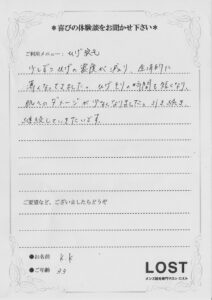 ＊喜びの体験談をお聞かせ下さい＊
ご利用メニュー：ひげ脱毛
少しずつひげの密度が減り、圧倒的に
薄くなってきました。ひげそりの時間も短くなり、
肌へのダメージが少なくなりました。引き続き、
継続していきたいです。
ご要望など、ございましたらどうぞ
●お名前 K.K
●ご年齢 33
LOST
メンズ脱毛専門サロン ロスト